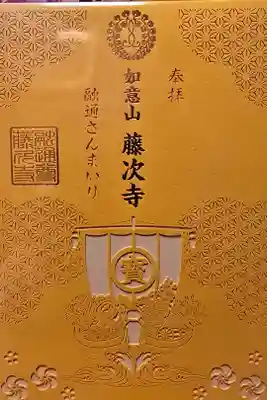 奉拝
如意山 藤次寺
融通さんまいり
融通尊
藤次寺
寶